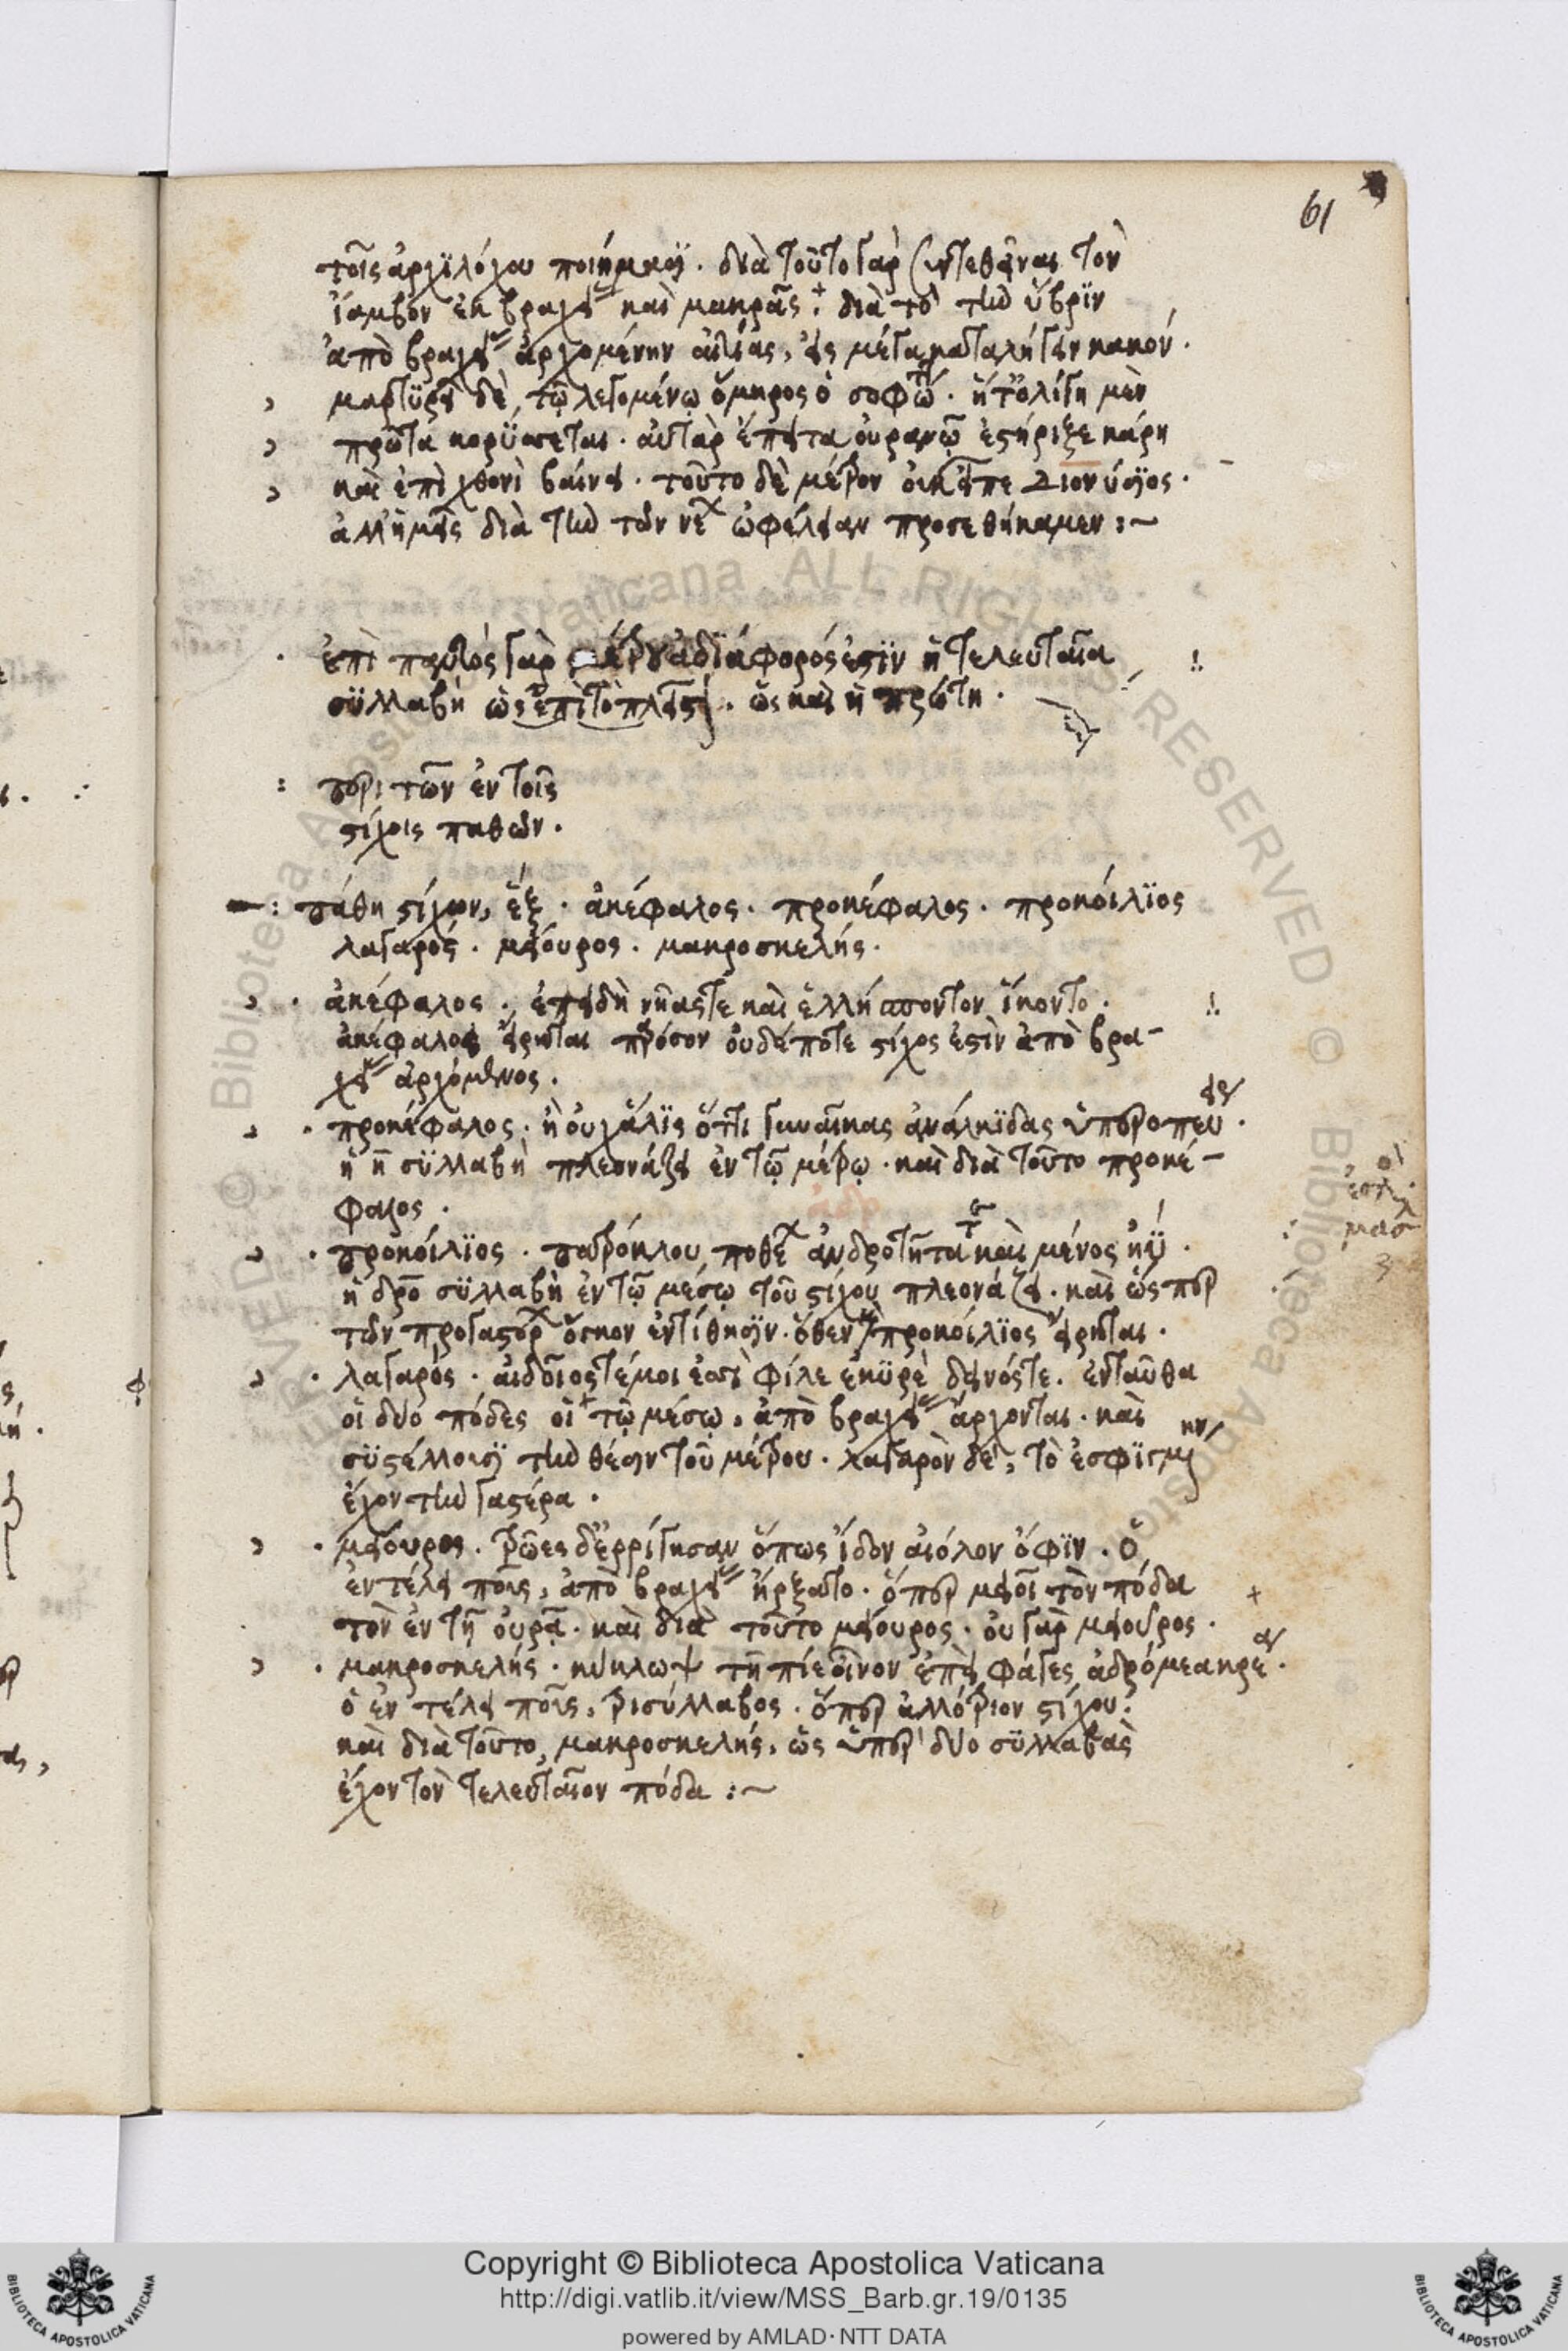 61
τοῖς ἀρχϊλόχου ποιήμασϊ. διὰ τοῦτο γαρ συντεθῆναι τὸν
ἴαμβον ἐκ βραχείας καὶ μακρᾶς: διὰ τὸ τὴν ὕβρϊν
ἀπὸ βραχείας ἀρχομένην αἰτίας, εἰς μέγα καταλήγειν κακόν.
μαρτϋρεῖ δὲ τῷ λεγομένῳ ὅμηρος ὁ σοφώτατος. ἥτ' ὀλίγη μὲν
πρῶτα κορϋσσεται. αὐτὰρ ἔπειτα οὐρανῷ ἐστήριξε κάρη
καὶ ἐπὶ χθονὶ βαίνει. τοῦτο δὲ μέτρον οὐκ εἶπε Διονύσϊος.
ἀλλ' ἡμεῖς διὰ τὴν τῶν νέων ὠφέλειαν προσεθήκαμεν:~
ἐπὶ παντὸς γὰρ μέτρου ἀδϊάφορός ἐστϊν ἡ τελευταία
σϋλλαβὴ ὡς ἐπὶ τὸ πλεῖστον. ὡς καὶ ἡ πρώτη.
περι τῶν ἐν τοῖς
στίχοις παθῶν.
πάθη στίχων, ἕξ. ἀκέφαλος. προκέφαλος. προκοίλϊος
λαγαρός. μείουρος. μακροσκελής.
ἀκέφαλος. ἐπειδὴ νῆάς τε καὶ ἑλλήσποντον ἵκοντο.
ἀκέφαλος εἴρηται παρόσον οὐδέποτε στίχος ἐστὶν ἀπὸ βρα-
χείας ἀρχόμενος.
προκέφαλος. ἢ οὐχ ἅλϊς ὅττι γυναῖκας ἀνάλκϊδας ὑπεροπεύεις.
ἡ η σϋλλαβὴ πλεονάζει ἐν τῷ μέτρῳ. καὶ διὰ τοῦτο προκέ-
φαλος.
προκοίλϊος. πατρόκλου ποθέων ἀνδροτῆτά τε καὶ μένος ἠΰ.
ἡ δρο σϋλλαβὴ ἐν τῷ μέσῳ τοῦ στίχου πλεονάζει. καὶ ὥσπερ
τῶν προγαστόρων ὄγκον ἐντίθησϊν. ὅθεν καὶ προκοίλϊος εἴρηται.
λαγαρός. αἰδοῖός τέ μοι ἐσσὶ φίλε ἑκϋρὲ δεινός τε. ἐνταῦθα
οἱ δύο πόδες οἱ τῷ μέσῳ, ἀπὸ βραχείας ἄρχονται. καὶ
σϋστέλλουσϊ τὴν θέσϊν τοῦ μέτρου. λαγαρὸν δὲ, τὸ ἐσφϊγμένην
ἔχον τὴν γαστέρα.
μείουρος. τρῶες δ' ἐρρίγησαν ὅπως ἴδον αἰόλον ὄφϊν. ὁ
ἐν τέλει ποῦς, ἀπὸ βραχείας ἤρξατο. ὅπερ μειοῖ τὸν πόδα
τὸν ἐν τῇ οὐρᾷ. καὶ διὰ τοῦτο μείουρος. οὐ γὰρ μείουρος.
μακροσκελής. κύκλωψ τῆ πίε οἶνον ἐπεὶ φάγες ἀδρόμεα κρέα.
ὁ ἐν τέλει ποῦς, τρισύλλαβος. ὅπερ ἀλλότριον στίχου.
καὶ διὰ τοῦτο, μακροσκελής, ὡς ὑπὲρ δύο σϋλλαβὰς
ἔχον τὸν τελευταῖον πόδα:~
Copyright © Biblioteca Apostolica Vaticana
http://digi.vatlib.it/view/MSS_Barb.gr.19/0135
powered by AMLAD · NTT DATA